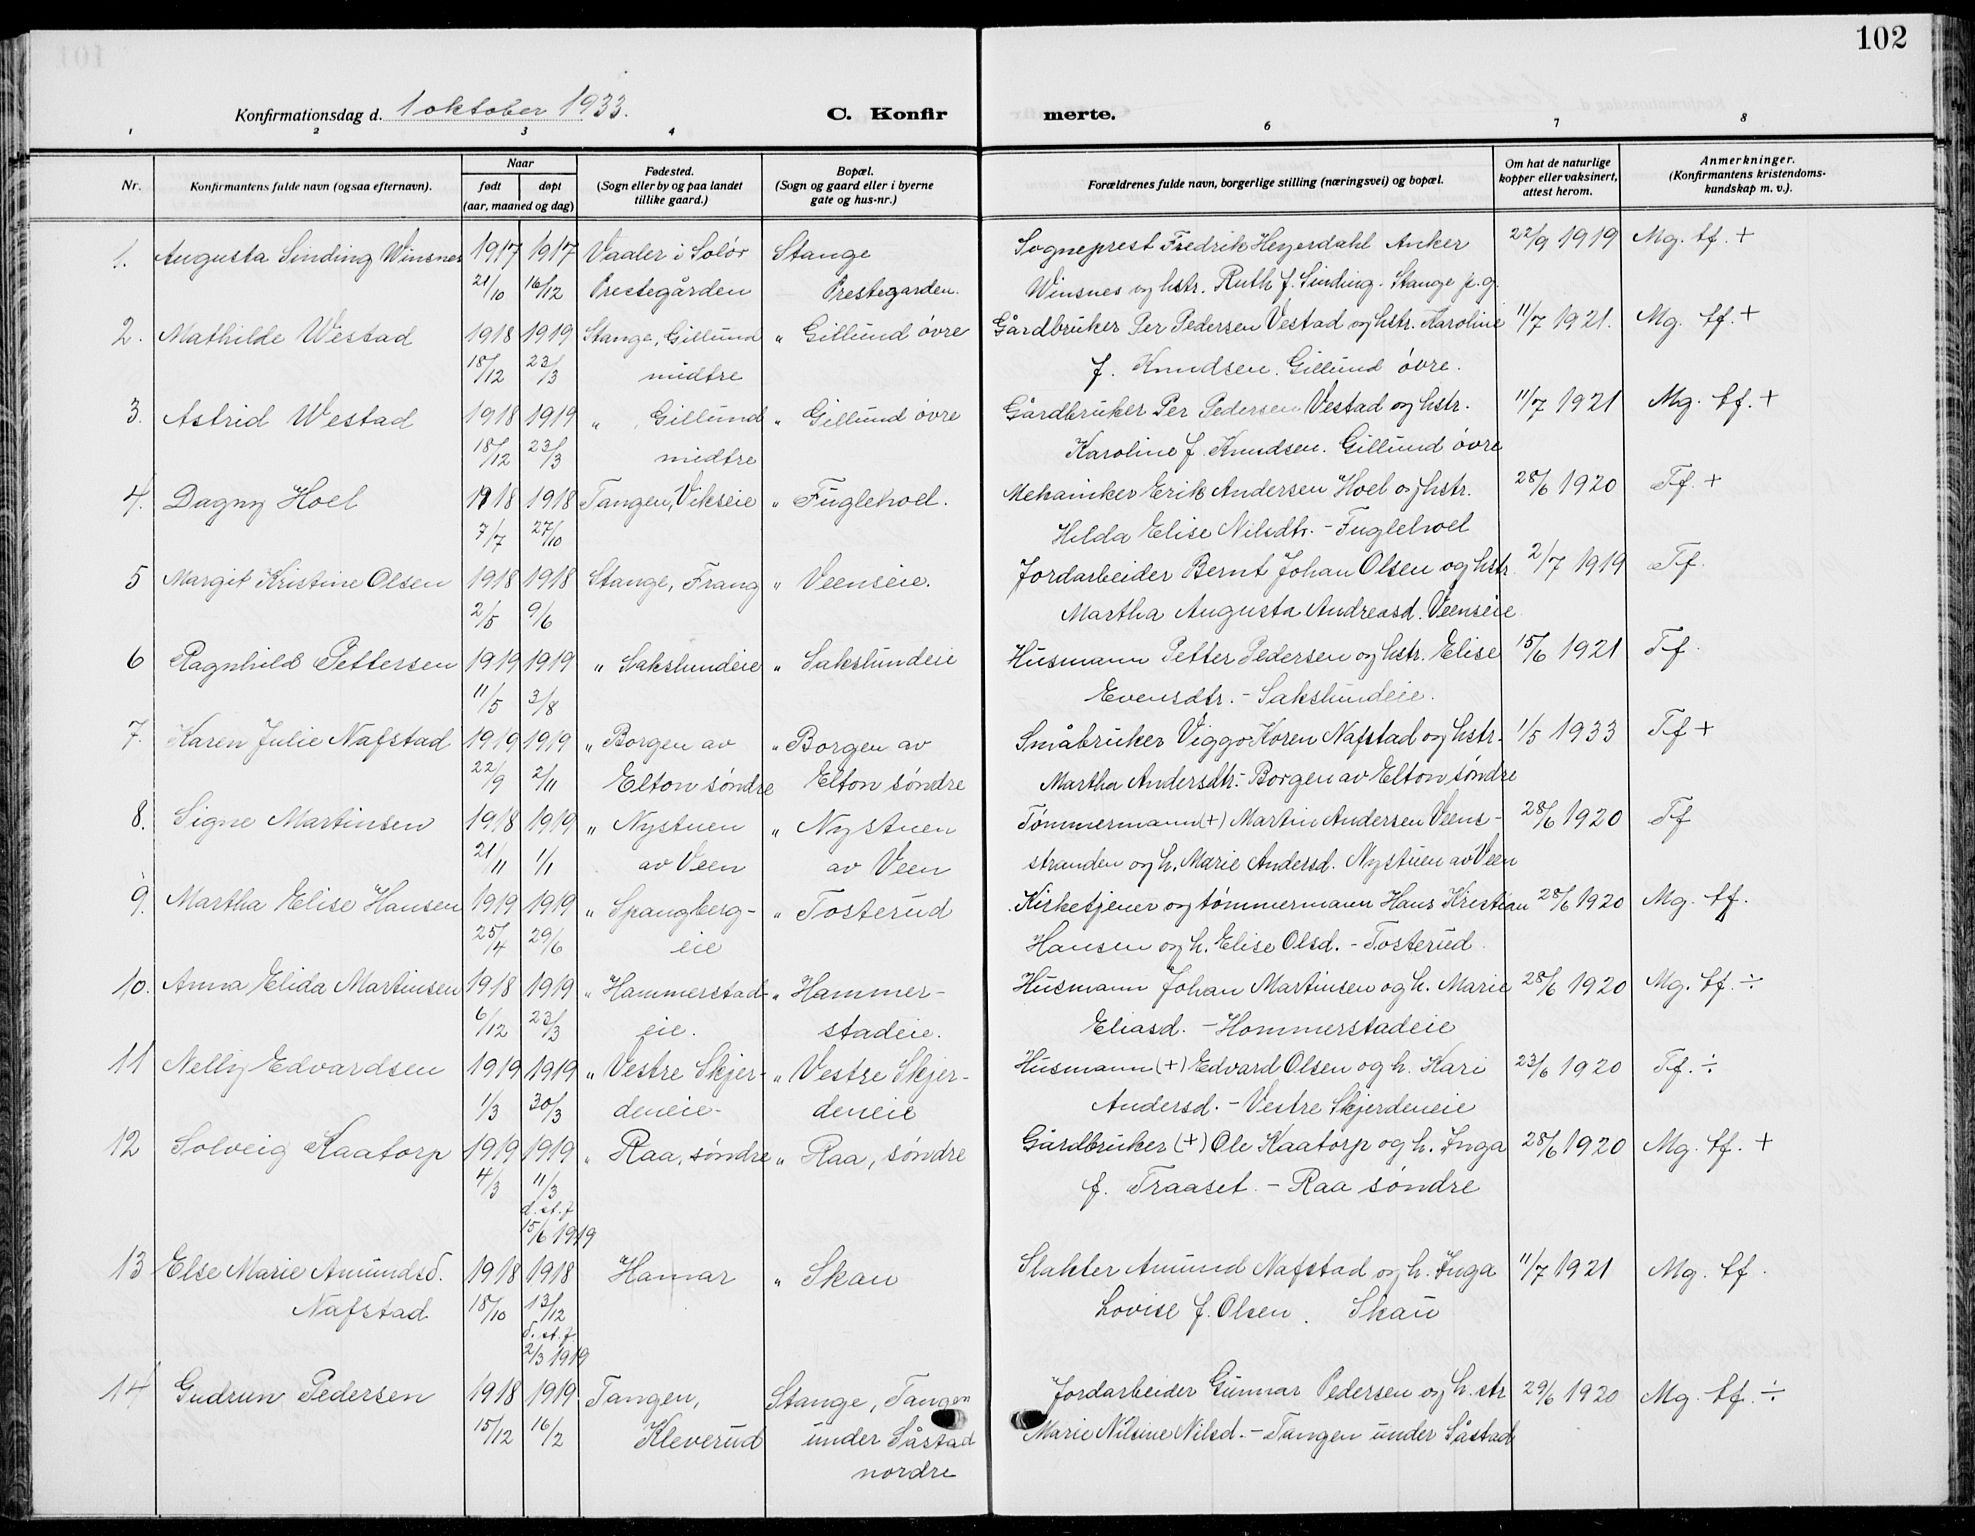 102
Konfirmationsdag d. 1 oktober 1933.
C. Konfir
merte.
1 2 3 4 6 7 8
Nr.
Konfirmantens fulde navn (ogsaa efternavn).
Naar
født døpt
(aar, maaned og dag)
Fødested.
(Sogn eller by og paa landet
tillike gaard.)
Bopæl.
(Sogn og gaard eller i byerne
gate og hus-nr.)
Forældrenes fulde navn, borgerlige stilling (næringsvei) og bopæl.
Om hat de naturlige
kopper eller vaksinert,
attest herom.
Anmerkninger.
(Konfirmantens kristendoms-
kundskap m. v.).
1. Augusta Sinding Winsnes 1917 1917 Vaaler i Solør Stange Sogneprest Fredrik Heyerdahl Anker 22/9 1919 Mg. tf. +
21/10 16/12 Prestegården Prestegarden. Winsnes og hstr. Ruth f. Sinding. Stange p.g.
2. Mathilde Westad 1918 1919 Stange, Gillund " Gillund øvre Gårdbruker Per Pedersen Vestad og hstr. Karoline 11/7 1921. Mg. tf. +
18/12 23/3 midtre f. Knudsen. Gillund øvre.
3. Astrid Westad 1918 1919 " Gillund " Gillund øvre Gårdbruker Per Pedersen Vestad og hstr. 11/7 1921 Mg. tf. +
18/12 23/3 midtre Karoline f. Knudsen. Gillund øvre
4. Dagny Hoel 1918 1918 Tangen, Vikseie " Fuglehoel. Mekaniker Erik Andersen Hoel og hstr. 28/6 1920 Tf. +
7/7 27/10 Hilda Elise Nilsdtr. - Fuglehoel
5 Margit Kristine Olsen 1918 1918 Stange, Frang " Veenseie. Jordarbeider Bernt Johan Olsen og hstr. 2/7 1919 Tf.
2/5 9/6 Martha Augusta Andreasd. Veenseie
6 Ragnhild Pettersen 1919 1919 " Sakslundeie " Sakslundeie Husmann Petter Pedersen og hstr. Elise 15/6 1921 Tf.
11/5 3/8 Evensdtr. - Sakslundeie.
7. Karen Julie Nafstad 1919 1919 " Borgen av " Borgen av Småbruker Viggo Koren Nafstad og hstr. 1/5 1933 Tf +
22/9 2/11 Elton søndre Elton søndre Martha Andersdtr. - Borgen av Elton søndre
8. Signe Martinsen 1918 1919 " Nystuen " Nystuen Tømmermann (+) Martin Andersen Veens- 28/6 1920 Tf
21/11 1/1 av Veen av Veen stranden og h. Marie Andersd. Nystuen av Veen
9. Martha Elise Hansen 1919 1919 " Spangberg- " Tosterud Kirketjener og tømmermann Hans Kristian 28/6 1920 Mg. tf.
25/4 29/6 eie Hansen og h. Elise Olsd. - Tosterud.
10. Anna Elida Martinsen 1918 1919 " Hammerstad- " Hammer- Husmann Johan Martinsen og h. Marie 28/6 1920 Mg. tf. ÷
6/12 23/3 eie. stadeie. Eliasd. - Hommerstadeie
11 Nelly Edvardsen 1919 1919 " Vestre Skjer- " Vestre Skjer- Husmann (+) Edvard Olsen og h. Kari 23/6 1920 Tf. ÷
1/3 30/3 deneie- deneie Andersd. - Vestre Skjerdeneie
12 Solveig Kaatorp 1919 1919 " Raa, søndre " Raa, søndre Gårdbruker (+) Ole Kaatorp og h. Inga 28/6 1920 Mg. tf. +
4/3 11/3 f. Traaset. - Raa søndre
d. st. f
15/6 1919
13 Else Marie Amundsd. 1918 1918 Hamar " Skau Slakter Amund Nafstad og h. Inga 11/7 1921 Mg. tf.
Nafstad 18/10 13/12 Lovise f. Olsen. Skau
d. st. f.
2/3 1919
14 Gudrun Pedersen 1918 1919 Tangen, Stange, Tangen Jordarbeider Gunnar Pedersen og h.str 29/6 1920 Mg. tf. ÷
15/12 16/2 Kleverud under Såstad Marie Nilsine Nilsd. - Tangen under Såstad
nordre